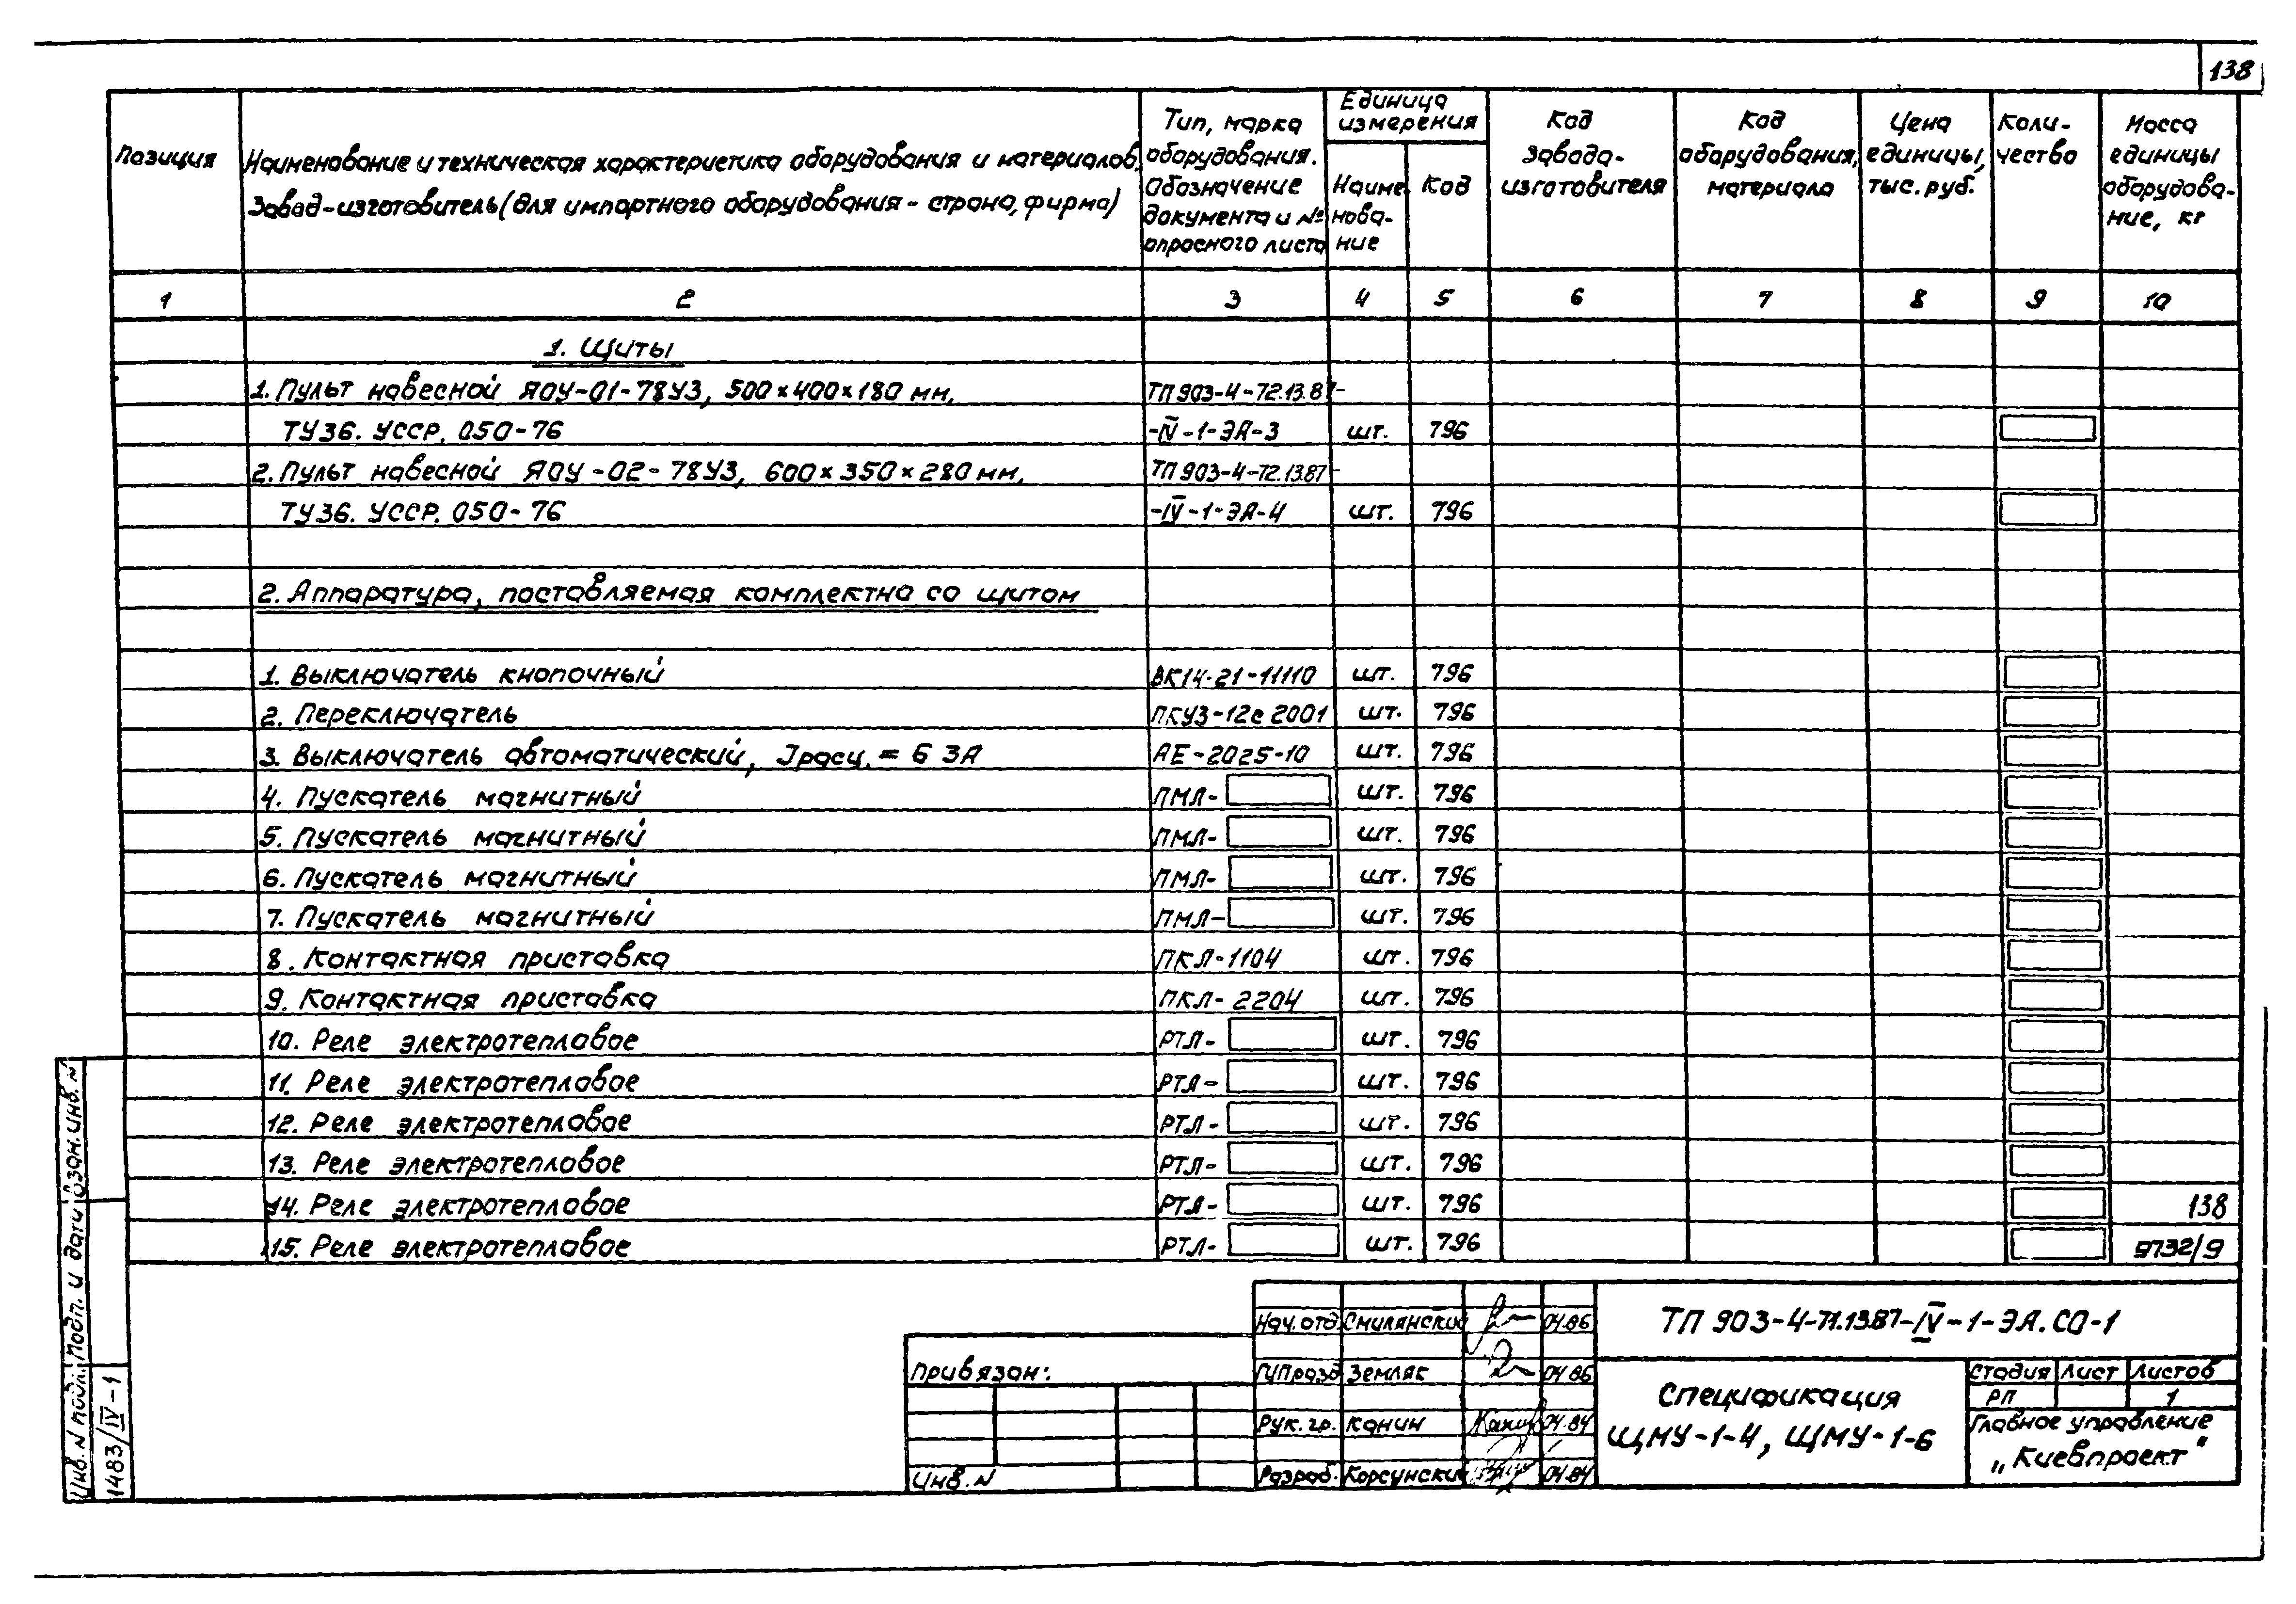 138
Позиция
Наименование и техническая характеристика оборудования и материалов.
Завод-изготовитель (для импортного оборудования - страна, фирма)
Тип, марка
оборудования.
Обозначение
документа и №
опросного листа
Единица
измерения
Наиме-
нова-
ние
Код
Код
завода-
изготовителя
Код
оборудования,
материала
Цена
единицы,
тыс. руб.
Коли-
чество
Масса
единицы
оборудова-
ние, кг
1 2 3 4 5 6 7 8 9 10
1. Щиты
1. Пульт навесной ЯОУ-01-78У3, 500×400×180 мм, ТП 903-4-72.13.87-
ТУ36. УССР. 050-76 -IV-1-ЭА-3 шт. 796
2. Пульт навесной ЯОУ-02-78У3, 600×350×280 мм, ТП 903-4-72.13.87-
ТУ36. УССР. 050-76 -IV-1-ЭА-4 шт. 796
2. Аппаратура, поставляемая комплектно со щитом
1. Выключатель кнопочный ВК14-21-11110 шт. 796
2. Переключатель ПКУ3-12с 2001 шт. 796
3. Выключатель автоматический, Iрасц. = 6 3А АЕ-2025-10 шт. 796
4. Пускатель магнитный ПМЛ- шт. 796
5. Пускатель магнитный ПМЛ- шт. 796
6. Пускатель магнитный ПМЛ- шт. 796
7. Пускатель магнитный ПМЛ- шт. 796
8. Контактная приставка ПКЛ-1104 шт. 796
9. Контактная приставка ПКЛ-2204 шт. 796
10. Реле электротепловое РТЛ- шт. 796
11. Реле электротепловое РТЛ- шт. 796
12. Реле электротепловое РТЛ- шт. 796
13. Реле электротепловое РТЛ- шт. 796
14. Реле электротепловое РТЛ- шт. 796 138
15. Реле электротепловое РТЛ- шт. 796 9732/9
Взан. инв. N
Подп. и дата
Инв. N подл.
1483/IV-1
Привязан:
Инв. N
Нач. отд Смилянский 04.86
ГИПразд Земляк 04.86
Рук. гр. Канин 04.84
Разраб. Корсунский 04.84
ТП 903-4-71.13.87-IV-1-ЭА.СО-1
Спецификация
ЩМУ-1-4, ЩМУ-1-6
Стадия Лист Листов
РП 1
Главное управление
„Киевпроект"